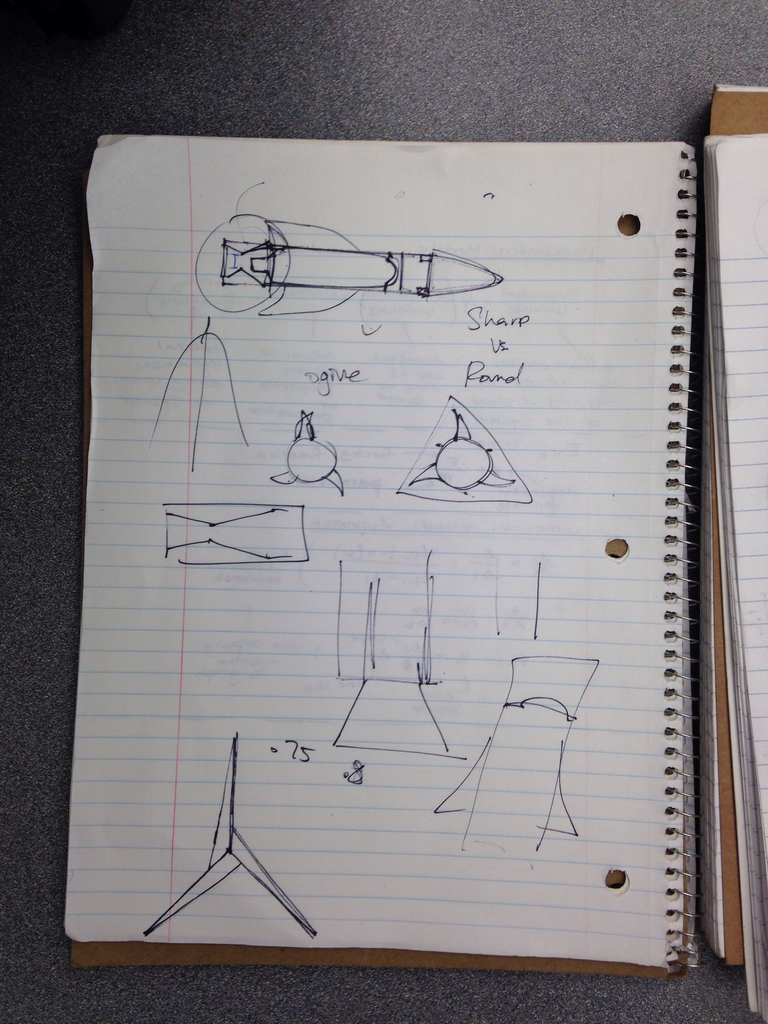 Sharp
vs
Round
ogive
.75
.8